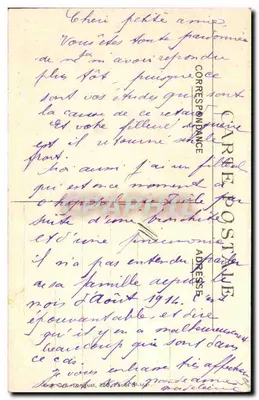 Cheri petite amie
Vous êtes toute pardonnée
de ne m'avoir répondre
plus tôt, puisque ce
sont vos études qui sont
la cause de ce retard
Et votre filleul
est il retourné sur le
front.
Moi aussi j'ai un filleul
qui est en ce moment à
l'hopital par
suite d'une bronchite
et d'une pneumonie
il n'a pas entendu parler
de sa famille depuis le
mois d'Août 1914. C'est
épouvantable et dire
qu'il y en a malheureusement
beaucoup qui sont dans
ce cas.
Je vous embrasse très affectueu
CARTE POSTALE
CORRESPONDANCE
ADRESSE